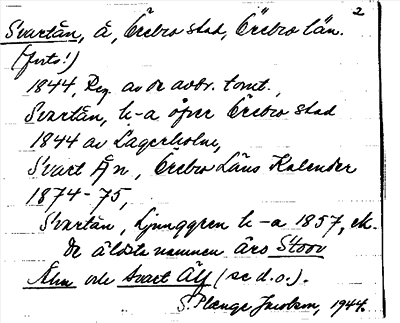 2
Svartån, å, Örebro stad, Örebro län.
(forts!)
1844, Reg. av de avbr. tomt.,
Svartån, k-a öfver Örebro stad
1844 av Lagerholm,
Svart Ån, Örebro Läns Kalender
1874-75,
Svartån, Ljunggren k-a 1857,
De äldsta namnen äro Stoor
Åhn och Svart Älf (se d.o.).
S. Plænge Jacobson, 1944.